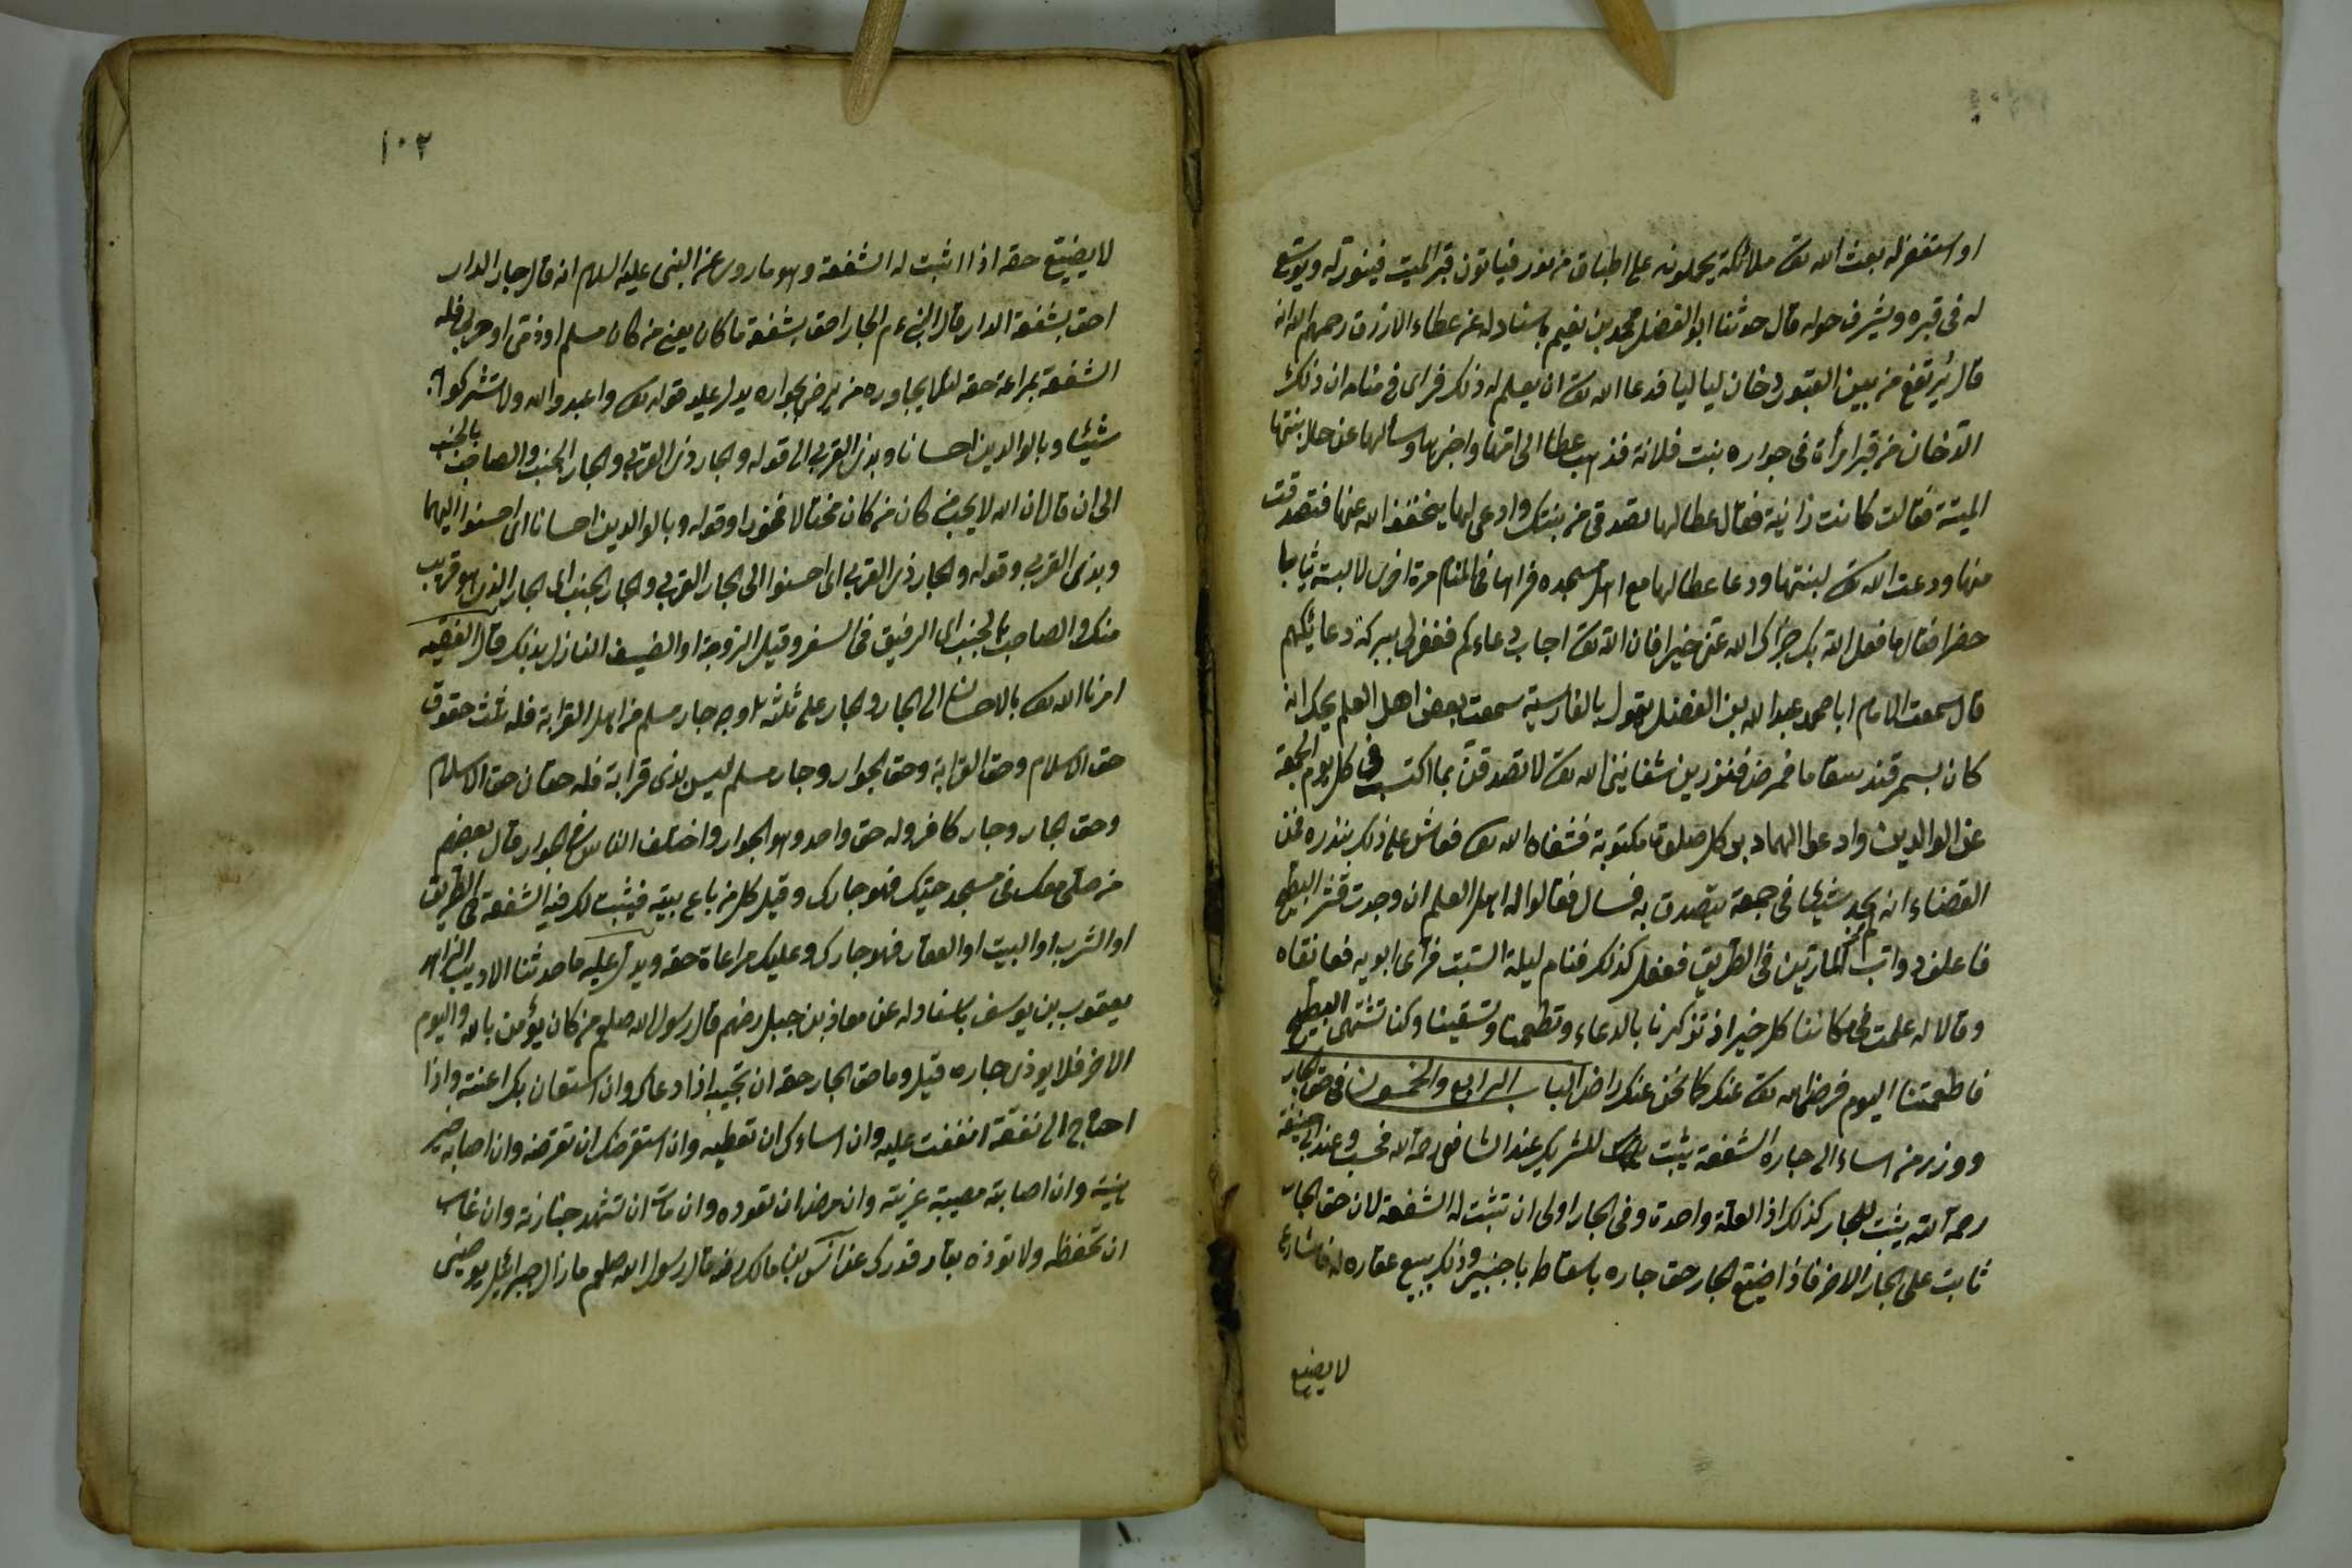 او استغفر له بعث الله تع ملائكة يحملونه على اطباق من نور فياتون قبر الميت فينور له ويوسع
له فى قبره ويشرف حوله قال حدثنا ابو الفضل محمد بن نعيم باسناد له عن عطاء الازرق رحمهم الله انه
قال يرتفع من بين القبور دخان لياليا فدعا الله تع ان يعلم له ذلك فراى فى منامه ان ذلك
الدخان من قبر امرأة فى جواره بنت فلانة فذهب عطا الى امها واخبرها وسألها عن حال بنتها
الميتة فقالت كانت زانية فقال عطا لها تصدقى من بنتك وادعى لها يخفف الله عنها فتصدقت
منها ودعت الله تع لبنتها ودعا عطا لها مع اهل مسجده فراها فى المنام مرة اخرى لابسة ثيابا
خضرا فقال ما فعل الله بك جزاك الله عنى خيرا فان الله تع اجاب دعاءكم فغفر لى ببركة دعائكم
قال سمعت الامام ابا محمد عبد الله بن الفضل يقول بالفارسية سمعت بعض اهل العلم يحكى انه
كان بسمرقند سقا ما فمرض فنذر ين شفانى الله تع لاتصدقن بما اكتسب فى كل يوم الجمعة
عن الوالدين وادعو لهما دبر كل صلوة مكتوبة فشفاه الله تع فعاش على ذلك بنذره فمن
القضاء انه لم يجد شيئا فى جمعة يتصدق به فسال فقالوا له اهل العلم ان وجدت قشر البطيخ
فاعلف دواب المارين فى الطريق ففعل كذلك فنام ليلة السبت فراى ابويه فعانقاه
وقالا له علمت فى مكاننا كل خير اذ تذكرنا بالدعاء وتطعمنا وتسقينا وكنا تشتهى البطيخ
فاطعمتنا اليوم فرضى الله تع عنك كما نحن عنك راض الباب الرابع والخمسون فى حق الجار
ووزر من اساء الى جاره الشفعة يثبت للشريك عند الشافعى رحمه الله فحسب وعند ابى حنيفة
رحمه الله يثبت للجار كذلك اذ العلة واحدة وفى الجار اولى ان تثبت له الشفعة لان حق الجار
ثابت على الجار الاخر فاذا ضيع الجار حق جاره باسقاط باجنبى وذلك ببيع عقاره له فالشارع
لا يضيع
١٠٢
لا يضيع حقه اذا اثبت له الشفعة وهو ما روى عن النبى عليه السلام انه قال جار الدار
احق بشفعة الدار قال النبى ءم الجار احق بشفعة ما كان يعنى من كان مسلم او ذمى او حربى فله
الشفعة بمراعة حقه لئلا يجاوره من يرضى بجواره يدل عليه قوله تع واعبدوا الله ولا تشركوا به
شيئا وبالوالدين احسانا وبذى القربى الى قوله والجار ذى القربى والجار الجنب والصاحب بالجنب
الى ان قال ان الله لا يحب من كان من كان مختالا فخورا وقوله وبالوالدين احسانا اى احسنوا اليهما
وبذى القربى وقوله والجار ذى القربى اى احسنوا الى الجار القربى والجار الجنب اى الجار الذى هو قريب
منك والصاحب بالجنب اى الرفيق فى السفر وقيل الزوجة او الضيف النازل بذلك قال الفقيه
امرنا الله تع بالاحسان الى الجار والجار على ثلثة اوجه جار مسلم من اهل القرابة فله ثلث حقوق
حق الاسلام وحق القرابة وحق الجوار وجار مسلم ليس بذى قرابة فله حقان حق الاسلام
وحق الجار وجار كافر وله حق واحد وهو الجوار واختلف الناس فى الجوار قال بعضهم
من صلى معك فى مسجد حيك فهو جارك وقيل كل من باع بيته فيثبت لك فيه الشفعة فى الطريق
او الشرب او البيت او العقار فهو جارك وعليك مراعاة حقه ويدل عليه ما حدثنا الاديب الزاهد
يعقوب بن يوسف باسناد له عن معاذ بن جبل رضهم قال رسول الله صلعم من كان يؤمن بالله واليوم
الاخر فلا يوذى جاره قيل وما حق الجار حقه ان تجيبه اذا دعاك وان استعان بك اعنته واذا
احتاج الى نفقة انفقت عليه وان اساءك ان تعطيه وان استقرضك ان تقرضه وان اصابه خير
هنيته وان اصابته مصيبة عزيته وان مرض ان تعوده وان مات ان تشهد جنازته وان غاب
ان تحفظه ولا توذه بقتار قدرك عن انس بن مالك رضه قال رسول الله صلعم ما زال جبرائيل يوصينى